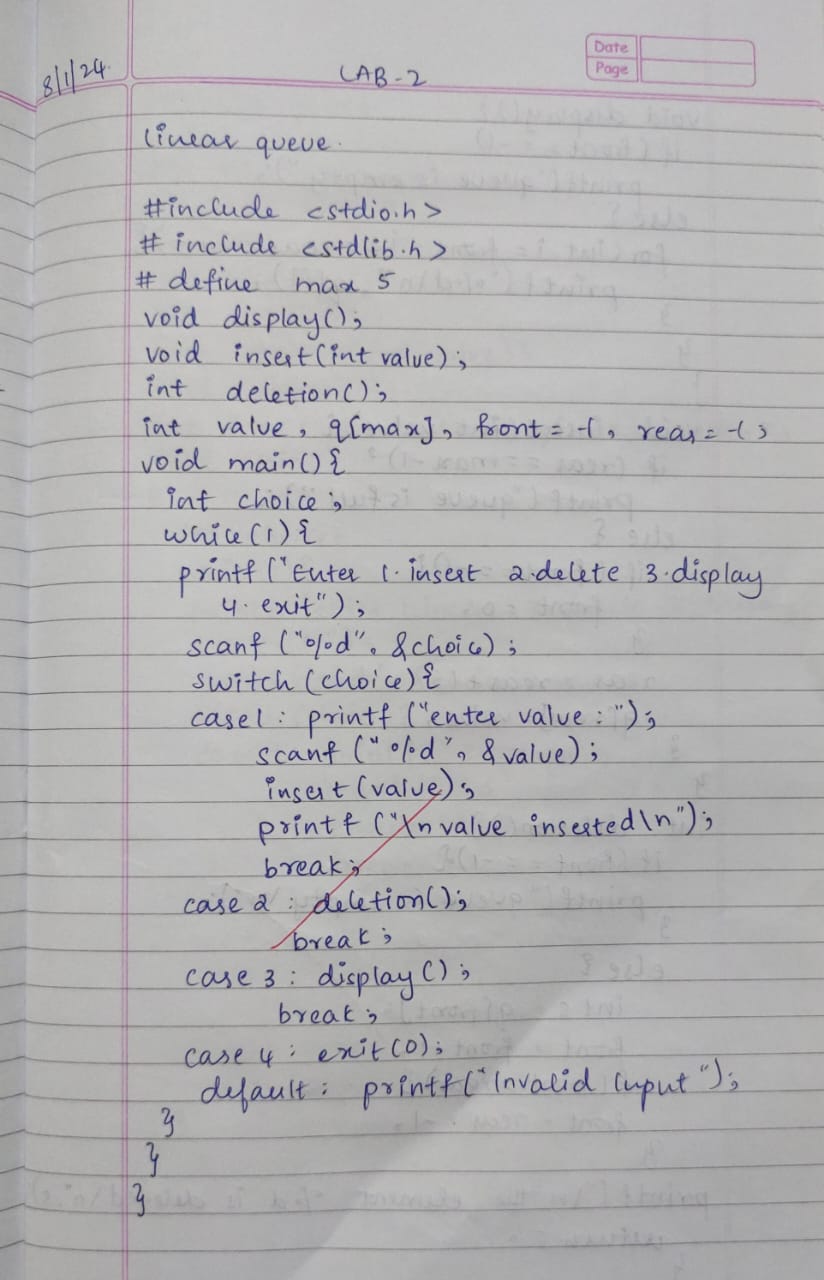 8/1/24.
LAB-2
Date
Page
linear queue.
#include <stdio.h>
# include <stdlib.h>
# define max 5
void display();
void insert(int value);
int deletion();
int value, q[max], front = -1, rear = -1;
void main() {
int choice;
while(1) {
printf ("Enter 1. insert 2.delete 3.display
4. exit");
scanf ("%d", &choice);
switch (choice) {
case1: printf ("enter value : ");
scanf ("%d", &value);
insert (value);
printf ("\n value inserted \n");
break;
case 2 : deletion();
break;
case 3 : display ();
break;
case 4 : exit (0);
default : printf (" Invalid input ");
}
}
}